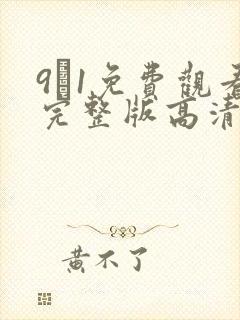 9 1免費觀看
完整版高清
黃不了